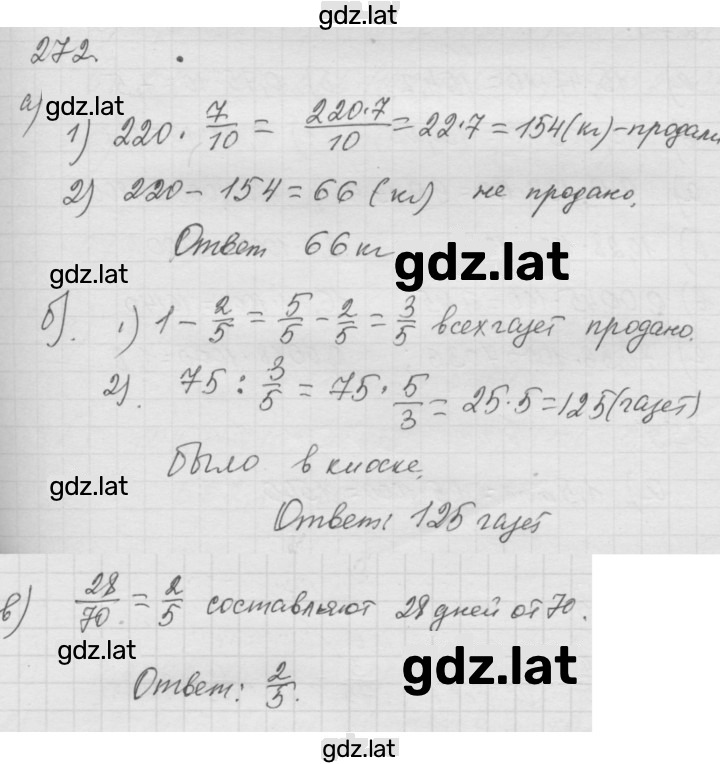 gdz.lat
272.
gdz.lat
а) 1) 220 · 7/10 = 220·7/10 = 22·7 = 154 (кг) - продали
2) 220 - 154 = 66 (кг) не продано.
Ответ 66 кг
gdz.lat
gdz.lat
б). 1) 1 - 2/5 = 5/5 - 2/5 = 3/5 всех газет продано.
2). 75 : 3/5 = 75 · 5/3 = 25·5 = 125 (газет)
было в киоске.
gdz.lat
Ответ: 125 газет
в) 28/70 = 2/5 составляют 28 дней от 70.
gdz.lat
gdz.lat
Ответ: 2/5.
gdz.lat